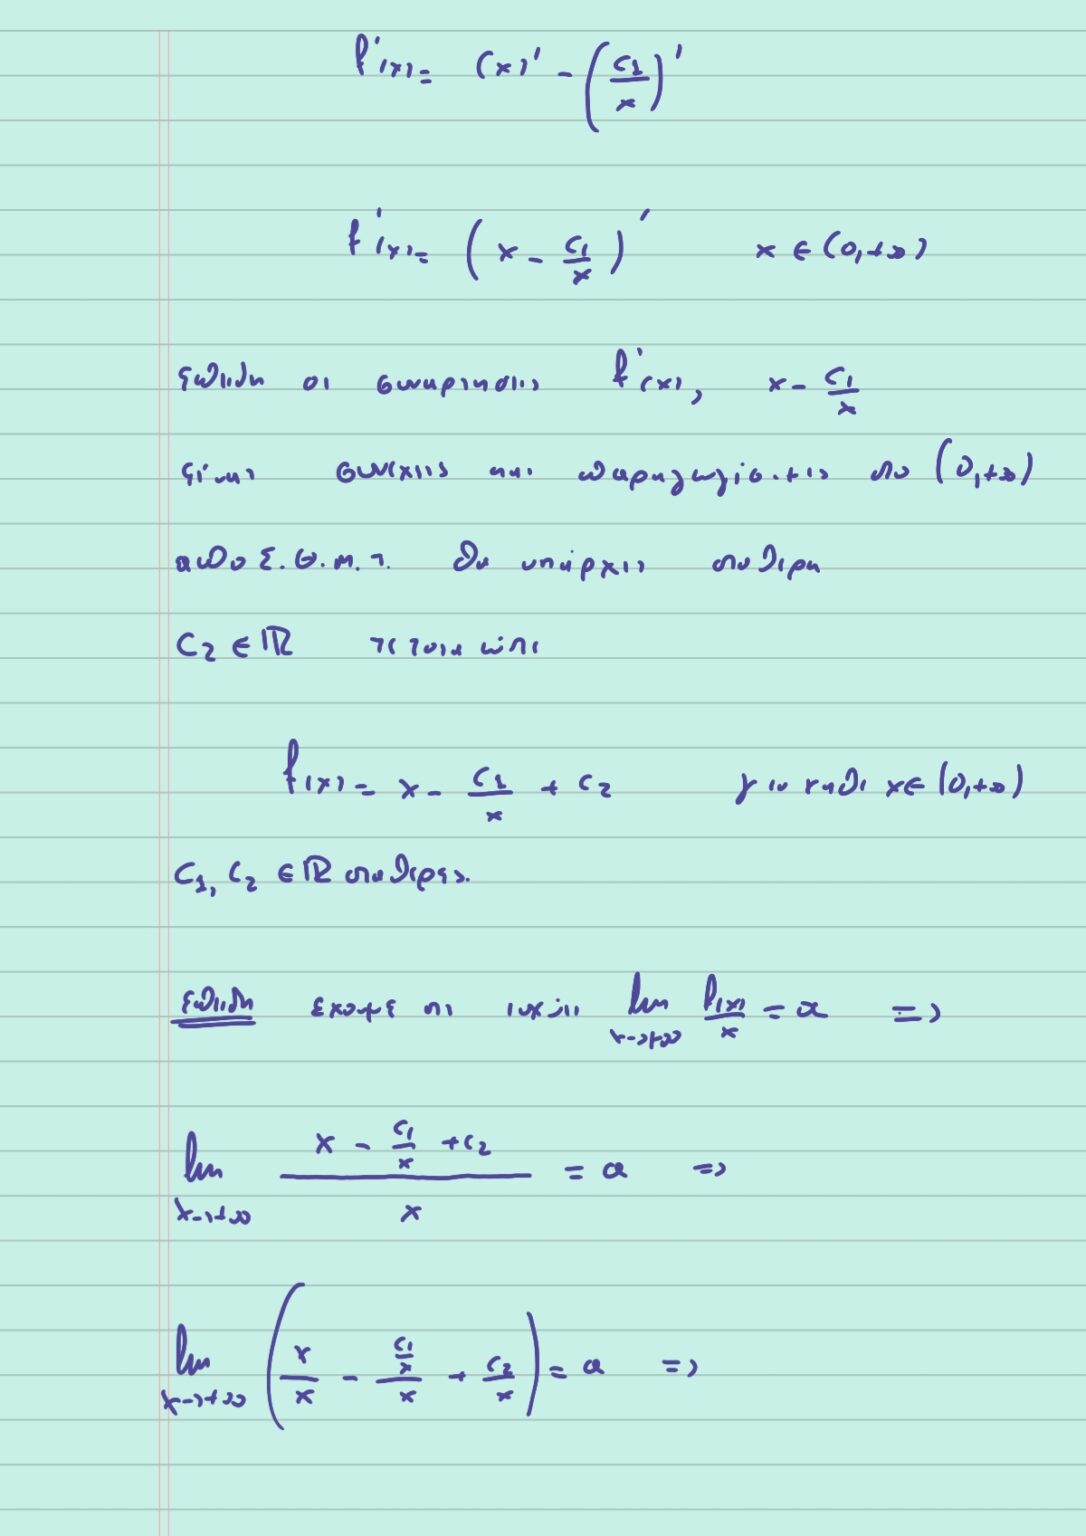 f'(x) = (x)' - (c₁/x)'
f'(x) = (x - c₁/x)' x ∈ (0,+∞)
Επειδή οι συναρτησεις f'(x), x - c₁/x
είναι συνεχεις και παραγωγίσιμες στο (0,+∞)
απο Σ.Θ.Μ.Τ. θα υπάρχει σταθερα
c₂ ∈ ℝ τετοια ώστε
f(x) = x - c₁/x + c₂ για καθε x ∈ (0,+∞)
c₁, c₂ ∈ ℝ σταθερες.
Επειδη εχουμε οτι ισχυει lim x→+∞ f(x)/x = α =>
lim x→+∞ (x - c₁/x + c₂)/x = α =>
lim x→+∞ (x/x - (c₁/x)/x + c₂/x) = α =>